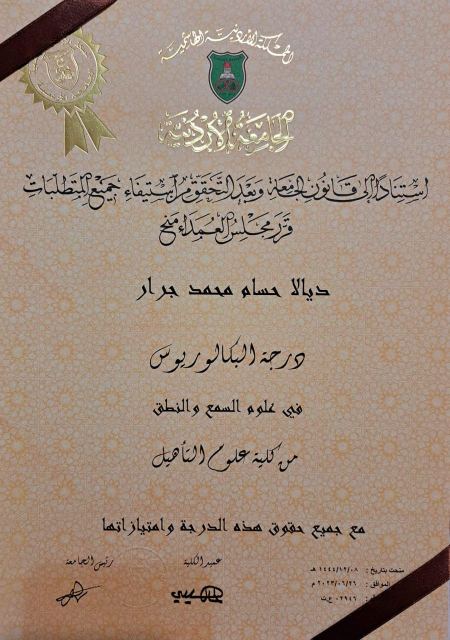 المملكة الأردنية الهاشمية
الجامعة الأردنية
استنادًا إلى قانون الجامعة وبعد التحقق من استيفاء جميع المتطلبات
قرر مجلس العمداء منح
ديالا حسام محمد جرار
درجة البكالوريوس
في علوم السمع والنطق
من كلية علوم التأهيل
مع جميع حقوق هذه الدرجة وامتيازاتها
رئيس الجامعة
عميد الكلية
منحت بتاريخ : ١٤٤٤/١٢/٠٨ هـ
الموافق : ٢٠٢٣/٠٦/٢٦ م
٠٢٩٤٦ ع.ت